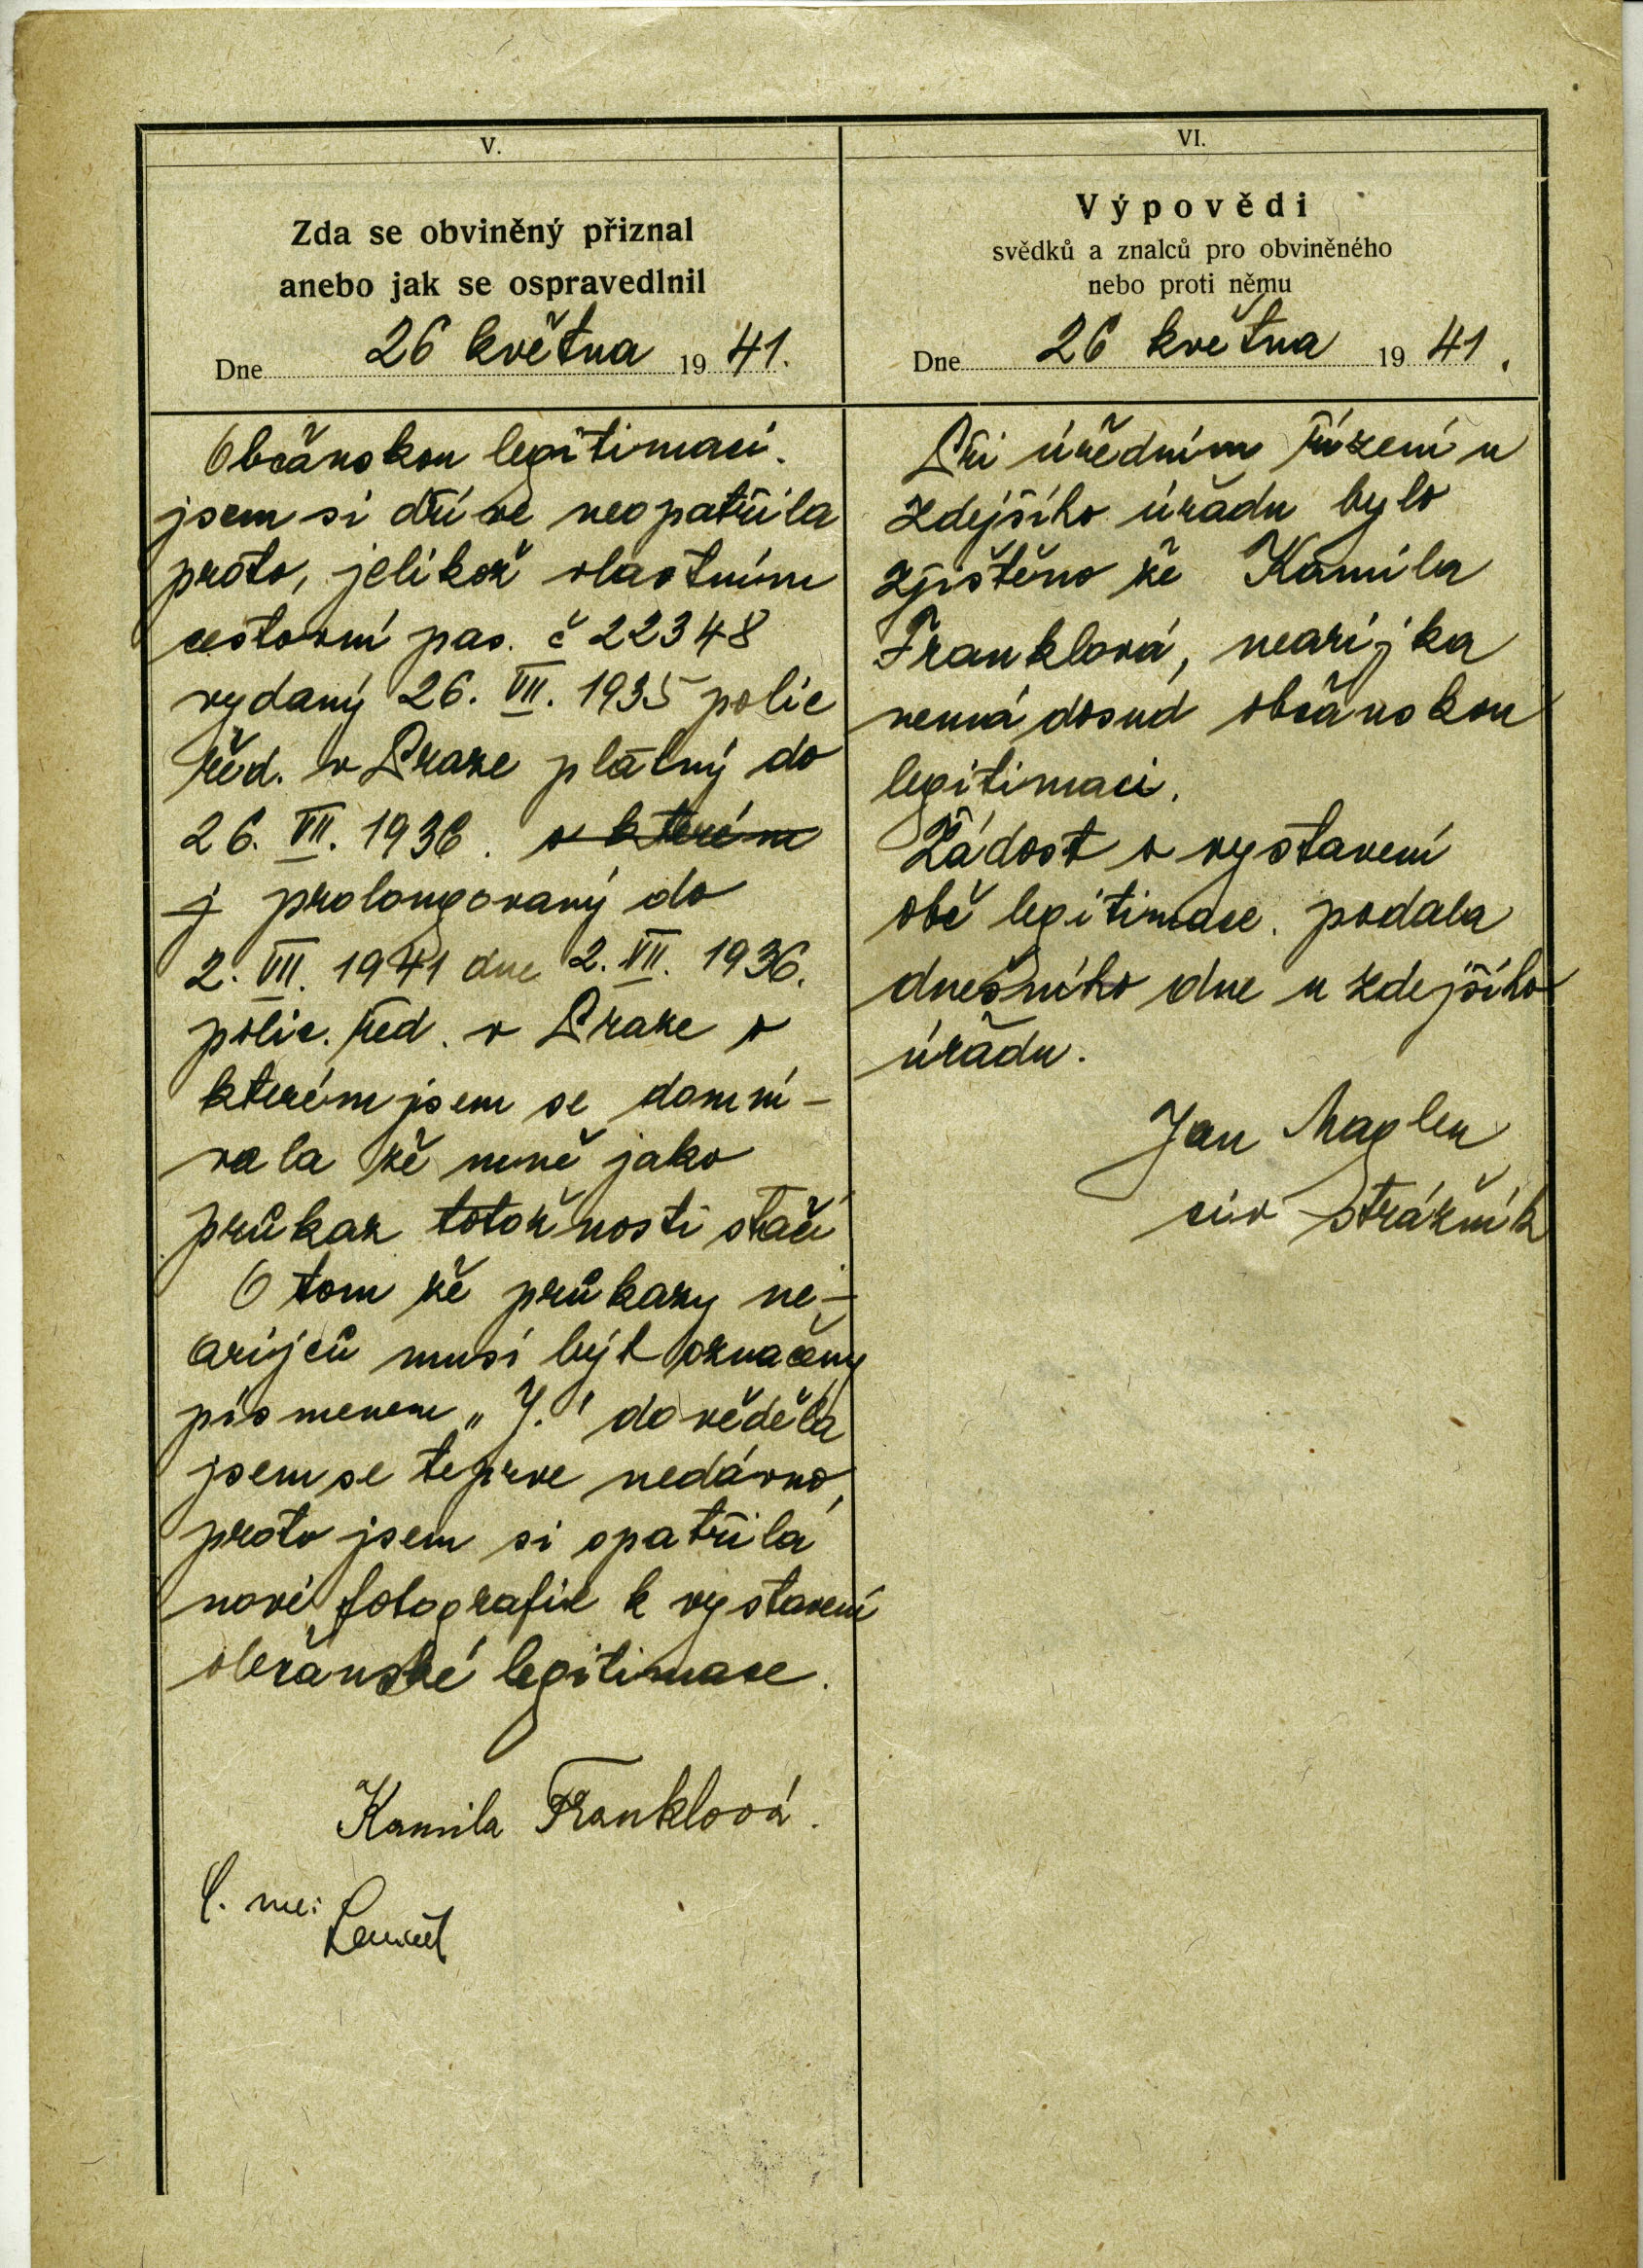 V.
Zda se obviněný přiznal
anebo jak se ospravedlnil
Dne 26 května 1941.
Občanskou legitimaci.
jsem si dříve neopatřila
proto, jelikož vlastním
cestovní pas. č 22348
vydaný 26. VII. 1935 polic
řed. v Praze platný do
26. VII. 1936. o kterém
j prolongovaný do
2. VII. 1941 dne 2. VII. 1936.
polic. řed. v Praze o
kterém jsem se domní-
vala že mně jako
průkaz totožnosti stačí
O tom že průkazy ne-
arijců musí být označeny
písmenem „J." dověděla
jsem se teprve nedávno,
proto jsem si opatřila
nové fotografie k vystavení
občanské legitimace.
Kamila Franklová.
VI.
Výpovědi
svědků a znalců pro obviněného
nebo proti němu
Dne 26 května 1941.
Při úředním řízení u
zdejšího úřadu bylo
zjištěno že Kamila
Franklová, nearijka
nemá dosud občanskou
legitimaci.
Žádost o vystavení
obč legitimace. podala
dnešního dne u zdejšího
úřadu.
Jan
civ strážník